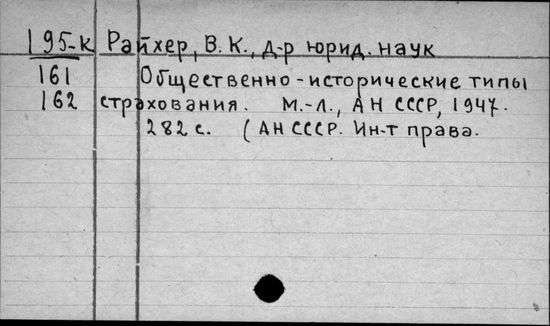 195-к Райхер, В. К., д-р юрид. наук
161 Общественно-исторические типы
162 страхования. М.-Л., АН СССР, 1947.
282 с. (АН СССР. Ин-т права.